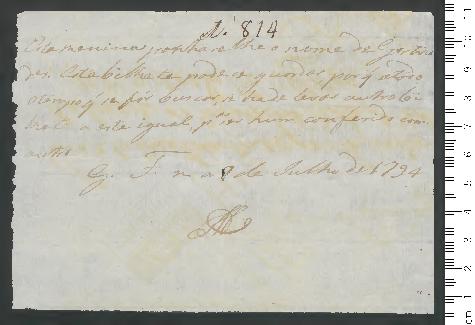 N. 814
Esta menina ponhase lhe o nome de Gertru
des. Este bilhete pode se guardar porq̃ a todo
o tempo q̃ se for buscar, se hade levar outro bi
lhete a este igual, pª ser hum conferido com
outro.
G. F. n a 8 de Julho de 1794